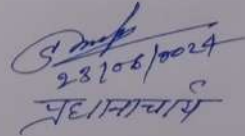 28/06/2024
प्रधानाचार्य